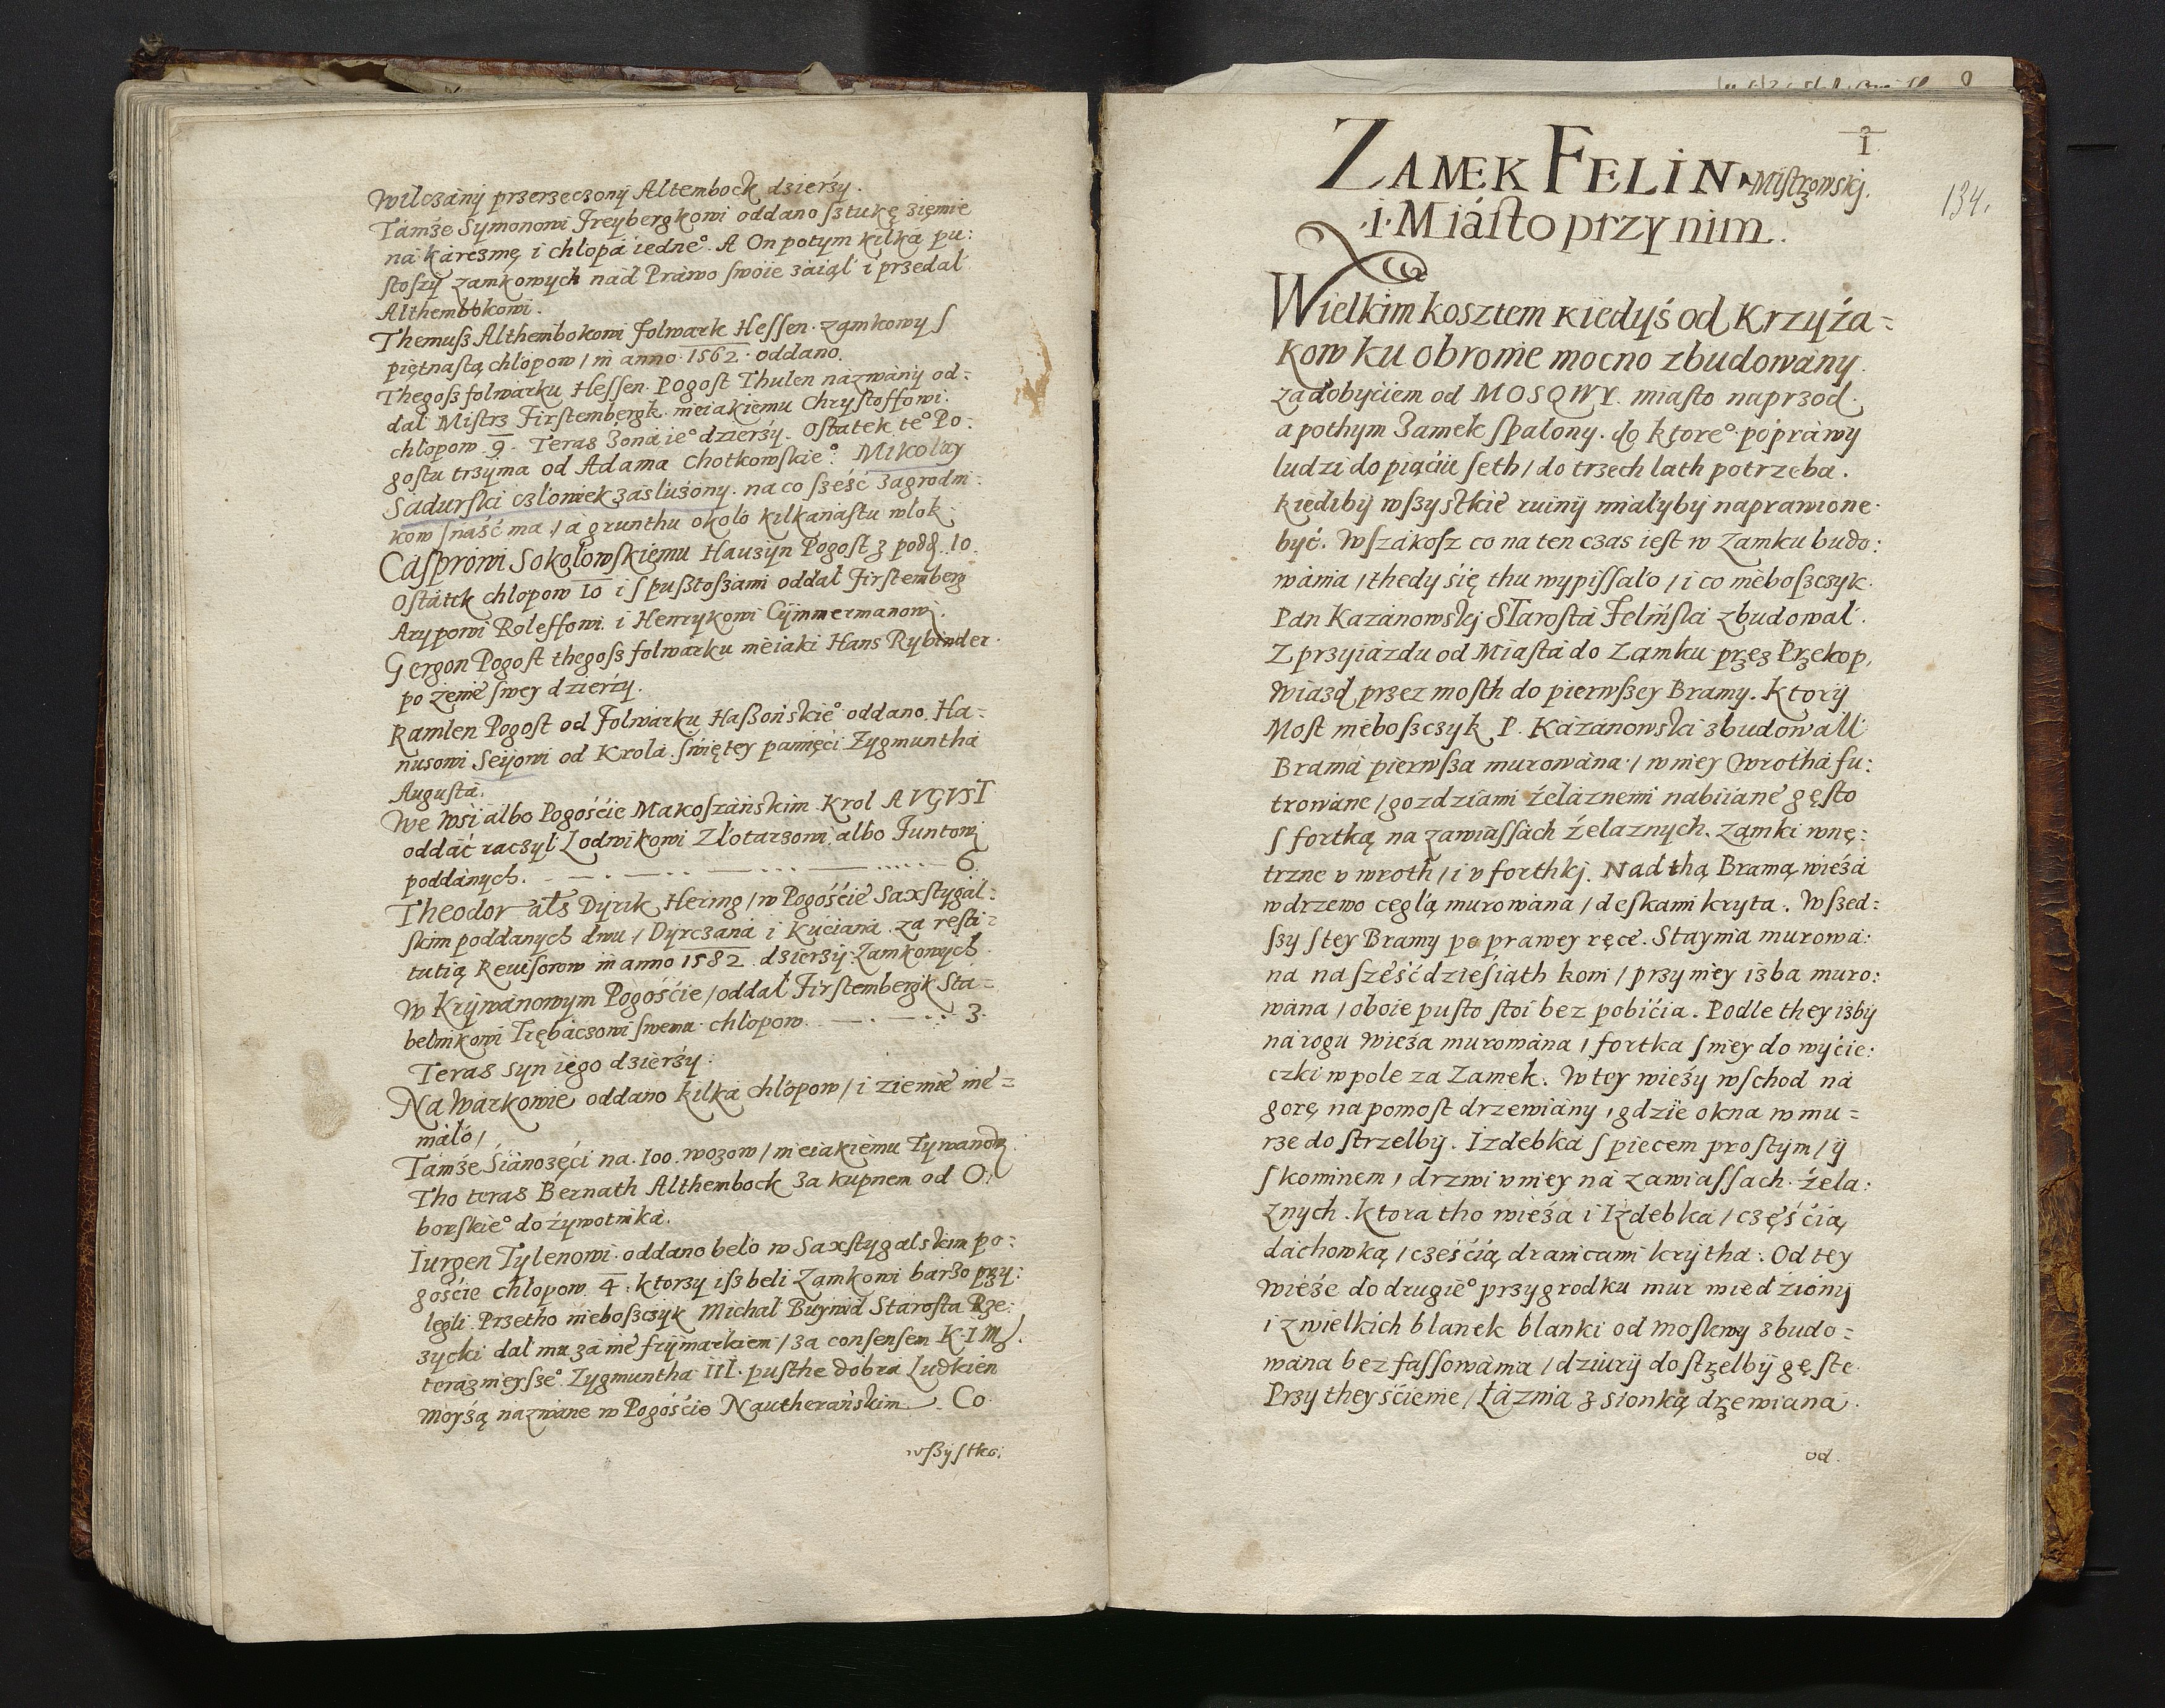 Wilczány przerzeczony Altembock dzierży.
Támże Symonowi Freybergkowi oddano sztukę ziemie
ná kárczmę i chłopá iedne°. A On potym kilká pu:
stoszy zamkowych nád Práwo swoie záiął i przedał
Althembokowi.
Themusz Althembokowi folwark Hessen zamkowy s
piętnastą chłopow / in anno 1562 oddano.
Thegosz folwarku Hessen Pogost Thulen názwány od:
dał Mistrz Firstembergk nieiakiemu Chrystoffowi.
chłopow 9. Teraz Żoná ie° dzierży. Ostatek te° Po:
gostu trzyma od Adama Chotkowskie°. Mikołay
Sadurski człowiek zasłużony. na co sześć zagrodni:
kow snaść ma / a grunthu około kilkanastu włok.
Casprowi Sokołowskiemu Hauzyn Pogost z podd. 10.
Ostátek chłopow 10 i s pusztoszami oddał Firstemberg
Arypowi Roleffowi i Henrykowi Cymmermanowi.
Gergon Pogost thegosz folwarku nieiaki Hans Rybinder
po żenie swey dzierży.
Ramlen Pogost od folwarku Haszońskie° oddano Ha:
nusowi Seyowi od Krolá świętey pamięci Zygmunthá
Augustá.
We Wsi albo Pogoście Makoszáńskim Krol AVGVST
oddáć raczył Lodwikowi Złotarzowi albo Juntowi
poddánych. 6.
Theodor als Dyrik Hering / w Pogoście Saxstygál:
skim poddanych dwu / Dyrczaná i Kuciáná za resti:
tutią Reuisorow in anno 1582 dzierży Zamkowych
W Krywánowym Pogoście / oddał Firstembergk Sta:
belnikowi Trębáczowi swemu chłopow 3.
Teraz syn iego dzierży:
Na Wárkowie oddano kilká chłopow / i ziemie nie:
máło /
Támże Siánożęci na 100. wozow / nieiakiemu Tywanow
Tho teraz Bernath Althembock za kupnem od O:
borskie° dożywotniká.
Iurgen Tylenowi oddano beło w Saxstygalskim po:
goście chłopow 4: ktorzy isz beli Zamkowi barzo przy:
legli. Przetho nieboszczyk Michał Buywid Starosta Rze:
życki dał mu zá nie fryimarkiem / za consensem K. I M.
teraznieysze° Zygmuntha III. pusthe dobra Ludkien
moyżą názwane w Pogoście Nautheráńskim Co
wszystko:
ZAMEK FELIN Mistrzowskj.
I
134.
i Miásto przy nim.
Wielkim kosztem kiedyś od Krzyża:
kow ku obronie mocno zbudowány
zadobyciem od MOSQWY. miasto naprzod
a pothym Zamek spalony. do ktore° poprawy
ludzi do piąciu seth / do trzech lath potrzeba.
kiedyby wszystkie ruiny miałyby naprawione
być. Wszákosz co na ten czas iest w Zamku budo:
wánia / thedy się thu wypissało / i co nieboszczyk
Pan Kazánowskj Stárostá Feliński zbudował.
Z przyiázdu od Miastá do Zamku przez Przekop,
Wiazd przez mosth do pierwszey Bramy. Ktory
Most nieboszczyk P. Kázánowski zbudowall
Bramá pierwsza murowána / w niey Wrothá fu:
trowáne / gozdziámi żeláznemi nabiiáne gęsto
s fortką na zawiassách żelaznych. Zamki wnę:
trzne v wroth / i v forthkj. Nad thą Bramą wieżá
w drzewo cegłą murowána / deskami kryta. Wszed:
szy s tey Bramy po prawey ręce. Stáynia murowa:
na na sześćdziesiąth koni / przy niey izba muro:
wána / oboie pusto stoi bez pobicia. Podle they izby
ná rogu Wieża murowána / fortka s niey do wycie:
czki w pole za Zamek. W tey wieży wschod ná
gorę na pomost drzewiány / gdzie okna w mu:
rze do strzelby. Izdebka s piecem prostym / y
s kominem / drzwi v niey ná zawiassach żela:
znych. ktora tho wieża i Izdebka / częścią
dáchowką / cześcią dranicami krytha. Od tey
Wieże do drugie° przygrodku mur wiedziony
i z wielkich blanek blanki od Moskwy zbudo:
wána bez fassowánia / dziury do strzelby gęste.
Przy they ścienie / Łáznia z sionką drzewiana
od.